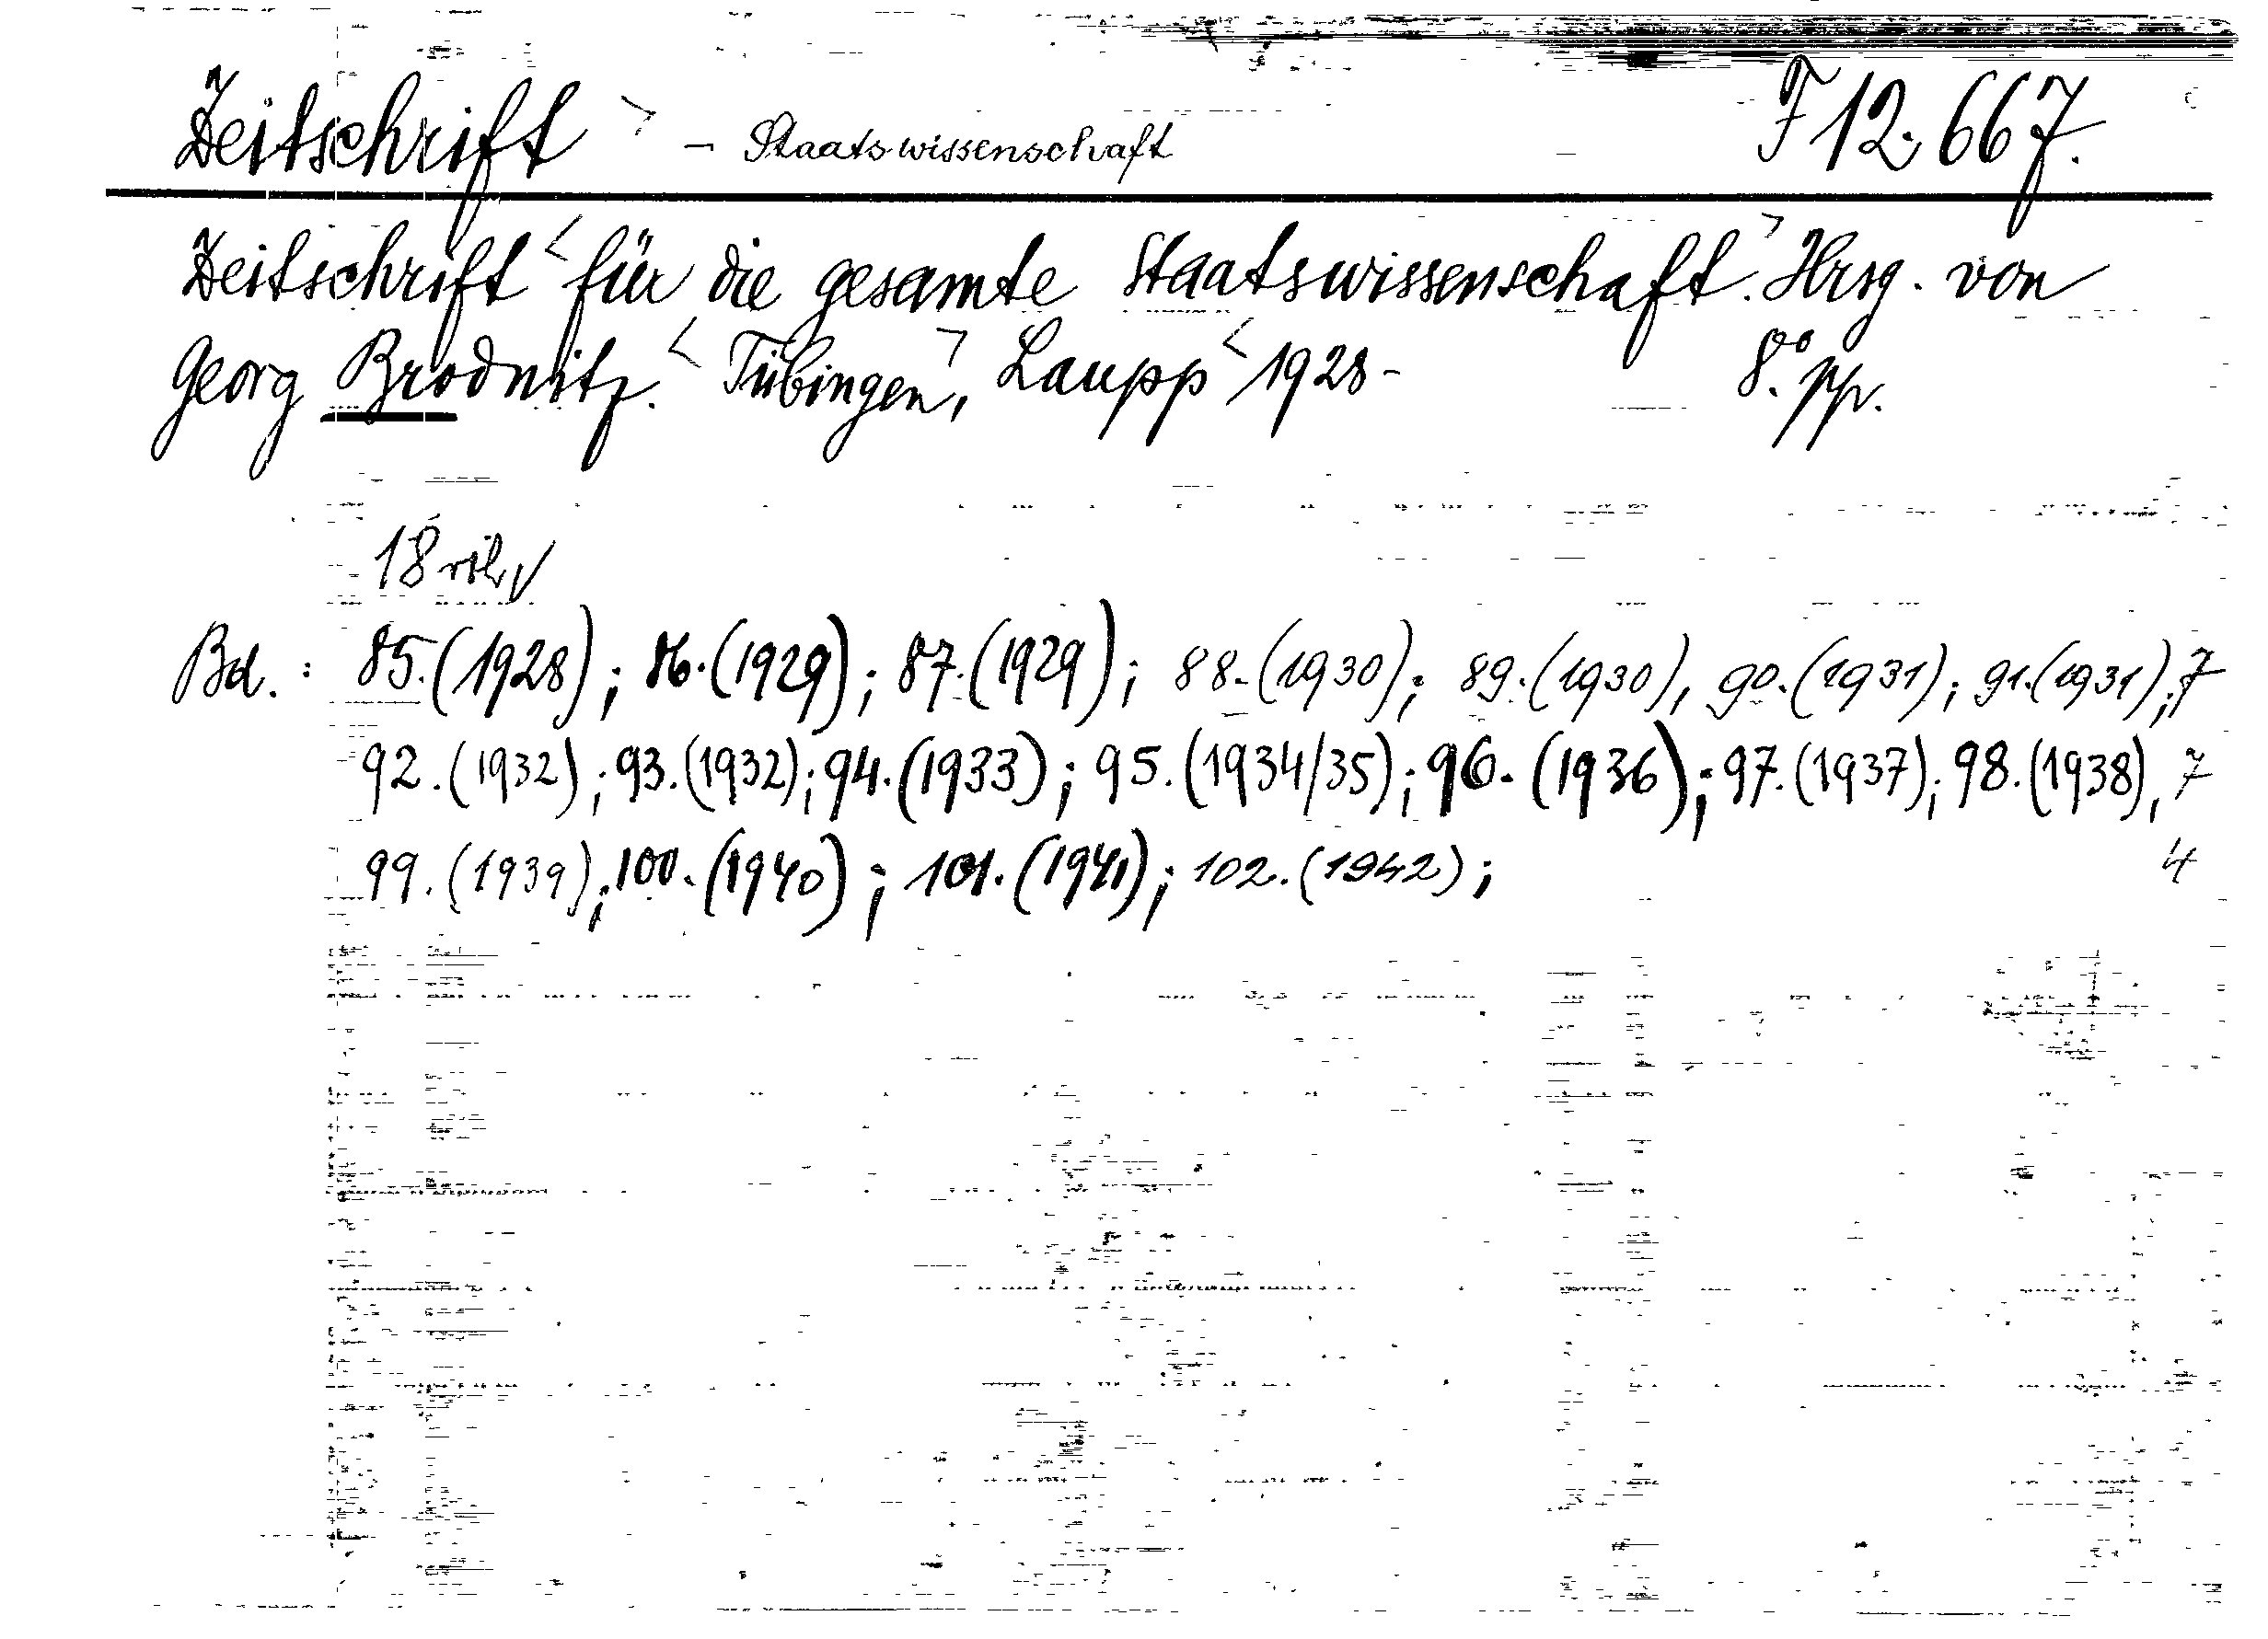 Zeitschrift > - Staatswissenschaft F 12.667.
Zeitschrift < für die gesamte Staatswissenschaft. > Hrsg. von
Georg Brodnitz. < Tübingen, > Laupp < 1928- 8°. ppr.
18
Bd. : 85. (1928) ; 86. (1929) ; 87. (1929) ; 88. (1930) ; 89. (1930), 90. (1931) ; 91. (1931) ; 7
92. (1932) ; 93. (1932) ; 94. (1933) ; 95. (1934/35) ; 96. (1936) ; 97. (1937) ; 98. (1938), 7
99. (1939) ; 100. (1940) ; 101. (1941) ; 102. (1942) ; 4